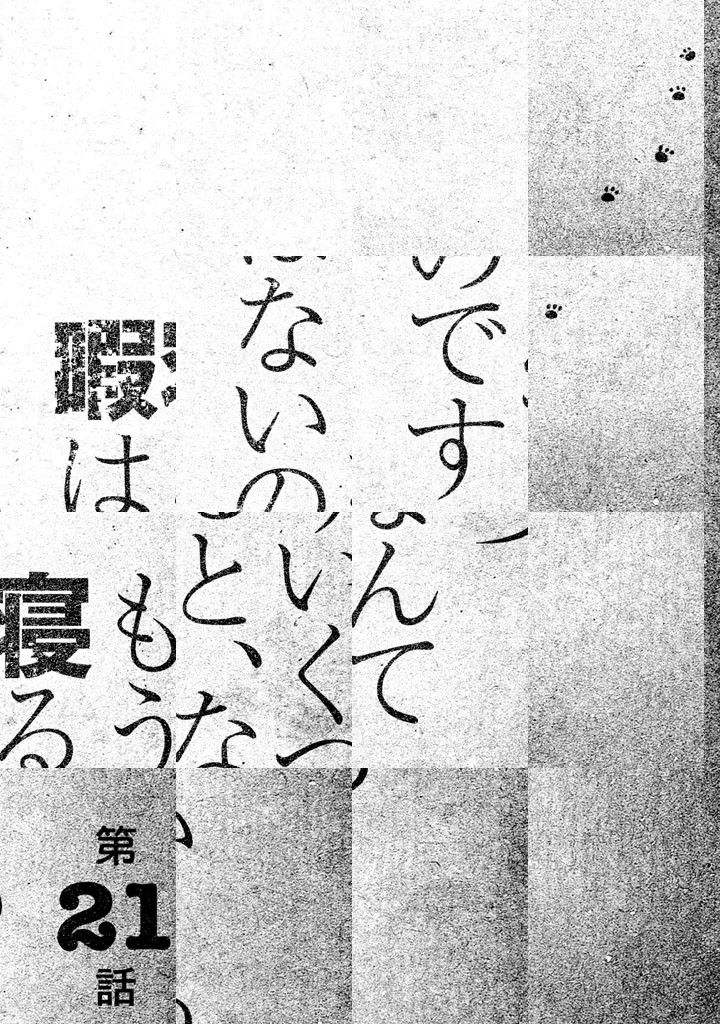 です
ないの
暇
は
んて
いく
と、な
もう
寝
る
第
21
話